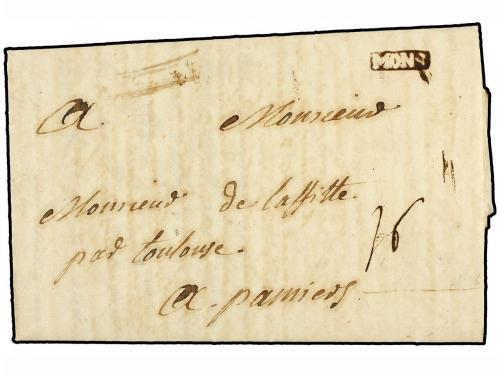 MONS
A Monsieur
Monsieur de laffitte
par toulouse
A pamiers
16